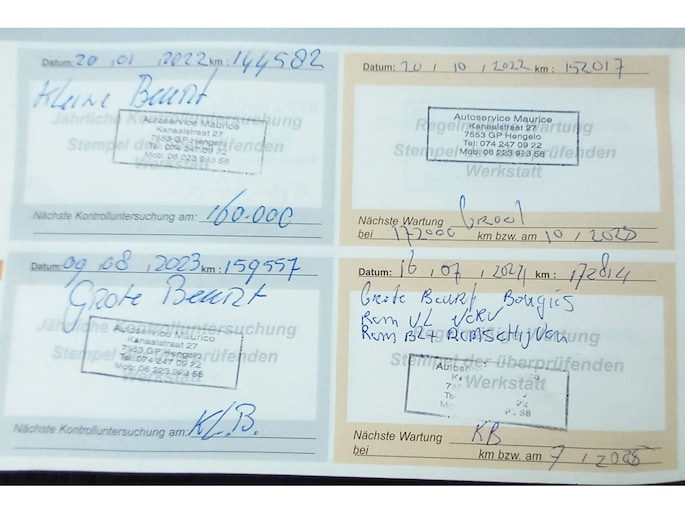 Datum: 20 , 01 , 2022 km : 144582
Kleine Beurt
Jährliche Kontrolluntersuchung
Stempel der überprüfenden
Werkstatt
Autoservice Maurice
Kanaalstraat 27
7553 GP Hengelo
Tel: 074 247 09 22
Mob: 06 223 993 58
Nächste Kontrolluntersuchung am: 160.000
Datum: 20 , 10 , 2022 km : 152017
Regelmäßige Wartung
Stempel der überprüfenden
Werkstatt
Autoservice Maurice
Kanaalstraat 27
7553 GP Hengelo
Tel: 074 247 09 22
Mob: 06 223 993 58
Nächste Wartung Groot
bei 172000 km bzw. am 10 , 2023
Datum: 09 , 08 , 2023 km : 159557
Grote Beurt
Jährliche Kontrolluntersuchung
Stempel der überprüfenden
Werkstatt
Autoservice Maurice
Kanaalstraat 27
7553 GP Hengelo
Tel: 074 247 09 22
Mob: 06 223 993 58
Nächste Kontrolluntersuchung am: KL.B.
Datum: 16 , 07 , 2024 km : 172814
Grote Beurt Bougies
Rem VL
Rem BL+ Remschijven
Stempel der überprüfenden
Werkstatt
Nächste Wartung KB
bei km bzw. am 7 , 2025